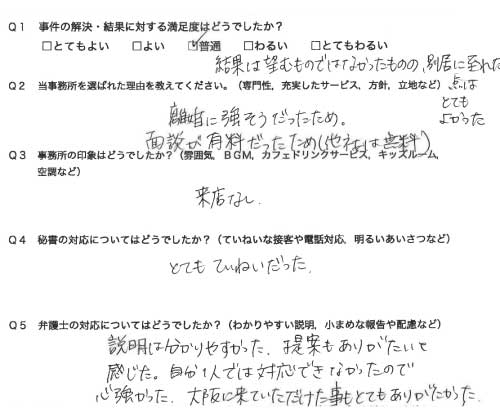 Q1 事件の解決・結果に対する満足度はどうでしたか？
□とてもよい □よい ☑普通 □わるい □とてもわるい
結果は望むものではなかったものの、別居に至れた
点は
とても
よかった
Q2 当事務所を選ばれた理由を教えてください。（専門性，充実したサービス，方針，立地など）
離婚に強そうだったため。
面談が有料だったため（他社は無料）
Q3 事務所の印象はどうでしたか？（雰囲気，BGM，カフェドリンクサービス，キッズルーム，
空調など）
来店なし.
Q4 秘書の対応についてはどうでしたか？（ていねいな接客や電話対応，明るいあいさつなど）
とてもていねいだった.
Q5 弁護士の対応についてはどうでしたか？（わかりやすい説明，小まめな報告や配慮など）
説明は分かりやすかった、提案もありがたいと
感じた。自分1人では対応できなかったので
心強かった、大阪に来ていただけた事もとてもありがたかった.